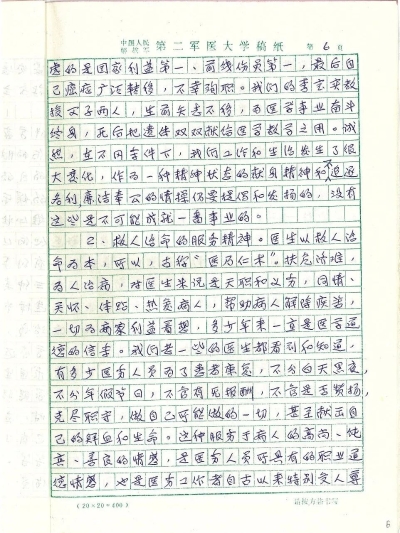 中国人民解放军 第二军医大学稿纸 第 6 页
虑的是国家利益第一、前线伤员第一，最后自
己癌症广泛转移，不幸殉职。我们的李
教授父子两人，生前 为医学事业奋斗
终身，死后把遗体双双献给医学教学之用。诚
然，在不同条件下，我们工作和生活发生了很
大变化，作为一种精神状态的献身精神和不追逐
名利廉洁奉公的情操仍要提倡和发扬的，没有
这些是不可能成就一番事业的。
2、救人治命的服务精神。医生以救人治
命为本，所以，古称“医乃仁术”。扶危济难，
为人治病，对医生来说是天职和义务，同情、
关怀、体贴、热爱病人，帮助病人解除疾苦，
一切为病家利益着想，多少年来一直是医学道
德的信条。我们老一些的医生都看到和知道，
有多少医务人员为了患者乘危，不分白天黑夜，
不分年假节日，不管有无报酬，不管是否紧张，
克尽职守，做自己可能做的一切，甚至献出自
己的鲜血和生命。这种服务于病人的高尚、纯
真、善良的情感，是医务人员所具有的职业道
德情感，也是医务工作者自古以来特别受人尊
(20×20=400)
6